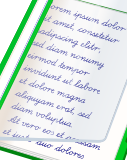 lorem ipsum dolor
sit amet, consetetur
sadipscing elitr,
sed diam nonumy
eirmod tempor
invidunt ut labore
et dolore magna
aliquyam erat, sed
diam voluptua.
at vero eos et accusam
et justo duo dolores